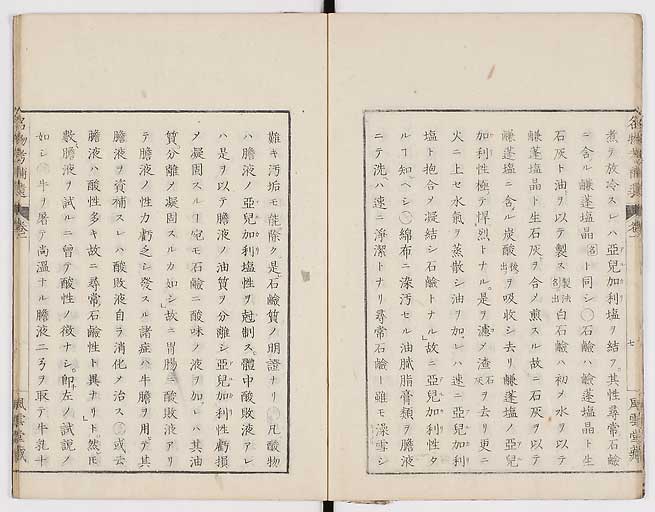 煮テ放冷スレハ亞兒加利塩リ結フ。其性尋常石鹼
ニ含ル鹻蓬塩晶名ト同シ○石鹼ハ鹻蓬塩晶ト生
石灰ト油ヲ以テ製ス製法後出白石鹼ハ初メ水ヲ以テ
鹻蓬塩晶ト生石灰ヲ合ノ煎スル故ニ石灰ヲ以テ
鹻蓬塩ニ含ル炭酸後出ヲ吸收シ去リ鹻蓬塩ノ亞兒
加利性極テ悍烈トナル。是ヲ濾メ渣石灰ヲ去リ更ニ
火ニ上セ水氣ヲ蒸散シ油ヲ加レハ速ニ亞兒加利
塩ト抱合メ凝結シ石鹼トナル」故ニ亞兒加利性タ
ルヿ知ヘシ○綿布ニ染汚セル油膩脂膏類ヲ膽液
ニテ洗ハ速ニ淨潔トナリ尋常石鹼ト雖モ澡雪シ
名物考補遺 卷一 七 風雲堂藏
難キ汚垢モ能除ク是石鹼質ノ明證ナリ○凡酸物
ハ膽液ノ亞兒加利塩性ヲ尅制ス。體中酸敗液アレ
ハ是ヲ以テ膽液ノ油質ヲ分離シ亞兒加利性虧損
メ凝固スルヿ宛モ石鹼ニ酸味ノ液ヲ加レハ其油
質分離メ凝固スルカ如シ」故ニ胃腸ニ酸敗液アリ
テ膽液ノ性力虧乏シ發スル諸症ハ牛膽ヲ用テ其
膽液ヲ資補スレハ酸敗液自ラ消化メ治ス○或云
膽液ハ酸性多キ故ニ尋常石鹼性ト異ナリト。然𪜈
數膽液ヲ試ルニ曾テ酸性ノ徴ナシ。卽左ノ試説ノ
如シ○牛ヲ屠テ尚溫ナル膽液二弓ヲ取テ牛乳十
名物考補遺 卷一 風雲堂藏